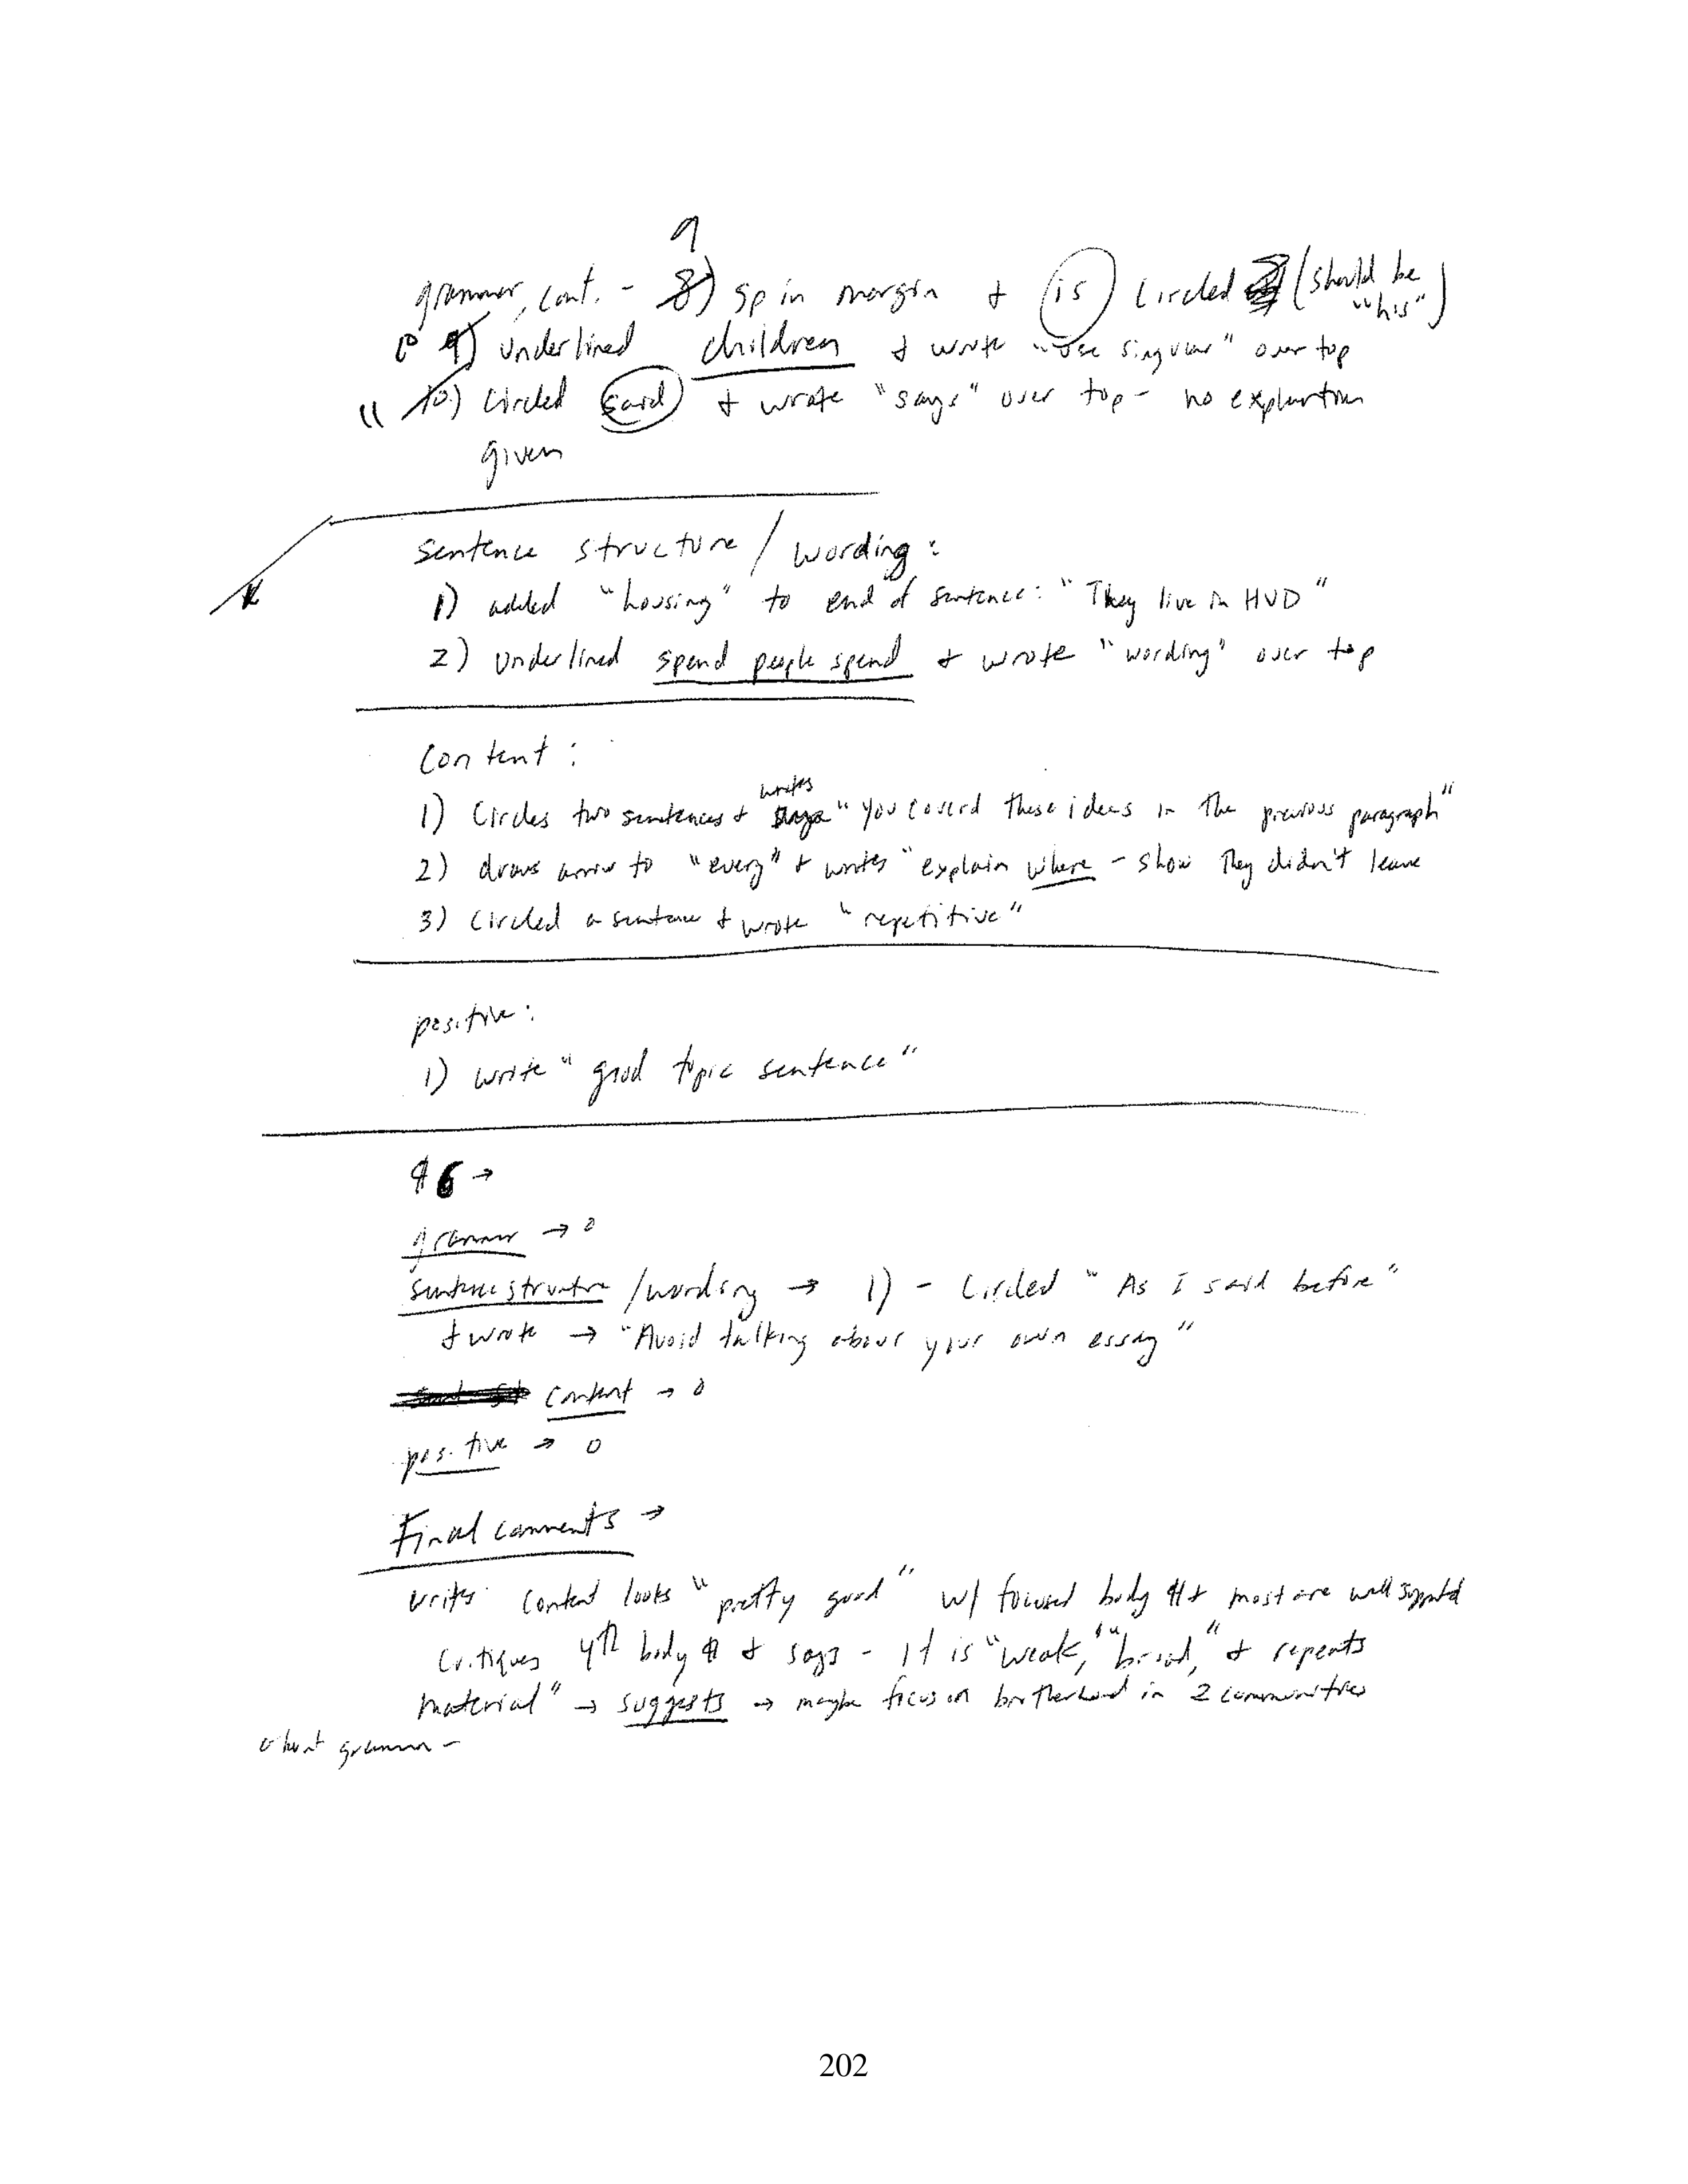 9
grammer, cont. - 8) sp in margin + is circled (should be "his")
10 9) underlined children + wrote "use singular" over top
11 10.) circled said + wrote "says" over top - no explantion
given
Sentence structure / wording:
1) added "housing" to end of sentence: "They live in HUD"
2) underlined spend people spend + wrote "wording" over top
Content:
writes
1) Circles two sentences + "you coverd these ideas in the previous paragraph"
2) draws arrow to "every" + writes "explain where - show they didn't leave
3) circled a sentence + wrote "repetitive"
positive:
1) write "good topic sentence"
¶ 6 →
grammer → 0
sentence structure /wording → 1) - Circled "As I said before"
+ wrote → "Avoid talking about your own essay"
content → 0
positive → 0
Final comments →
writes content looks "pretty good" w/ focused body ¶ + most are well supported
critiques 4th body ¶ + says - it is "weak," "broad," + repeats
material" → suggests → maybe focus on brotherhood in 2 communities
about grammar -
202